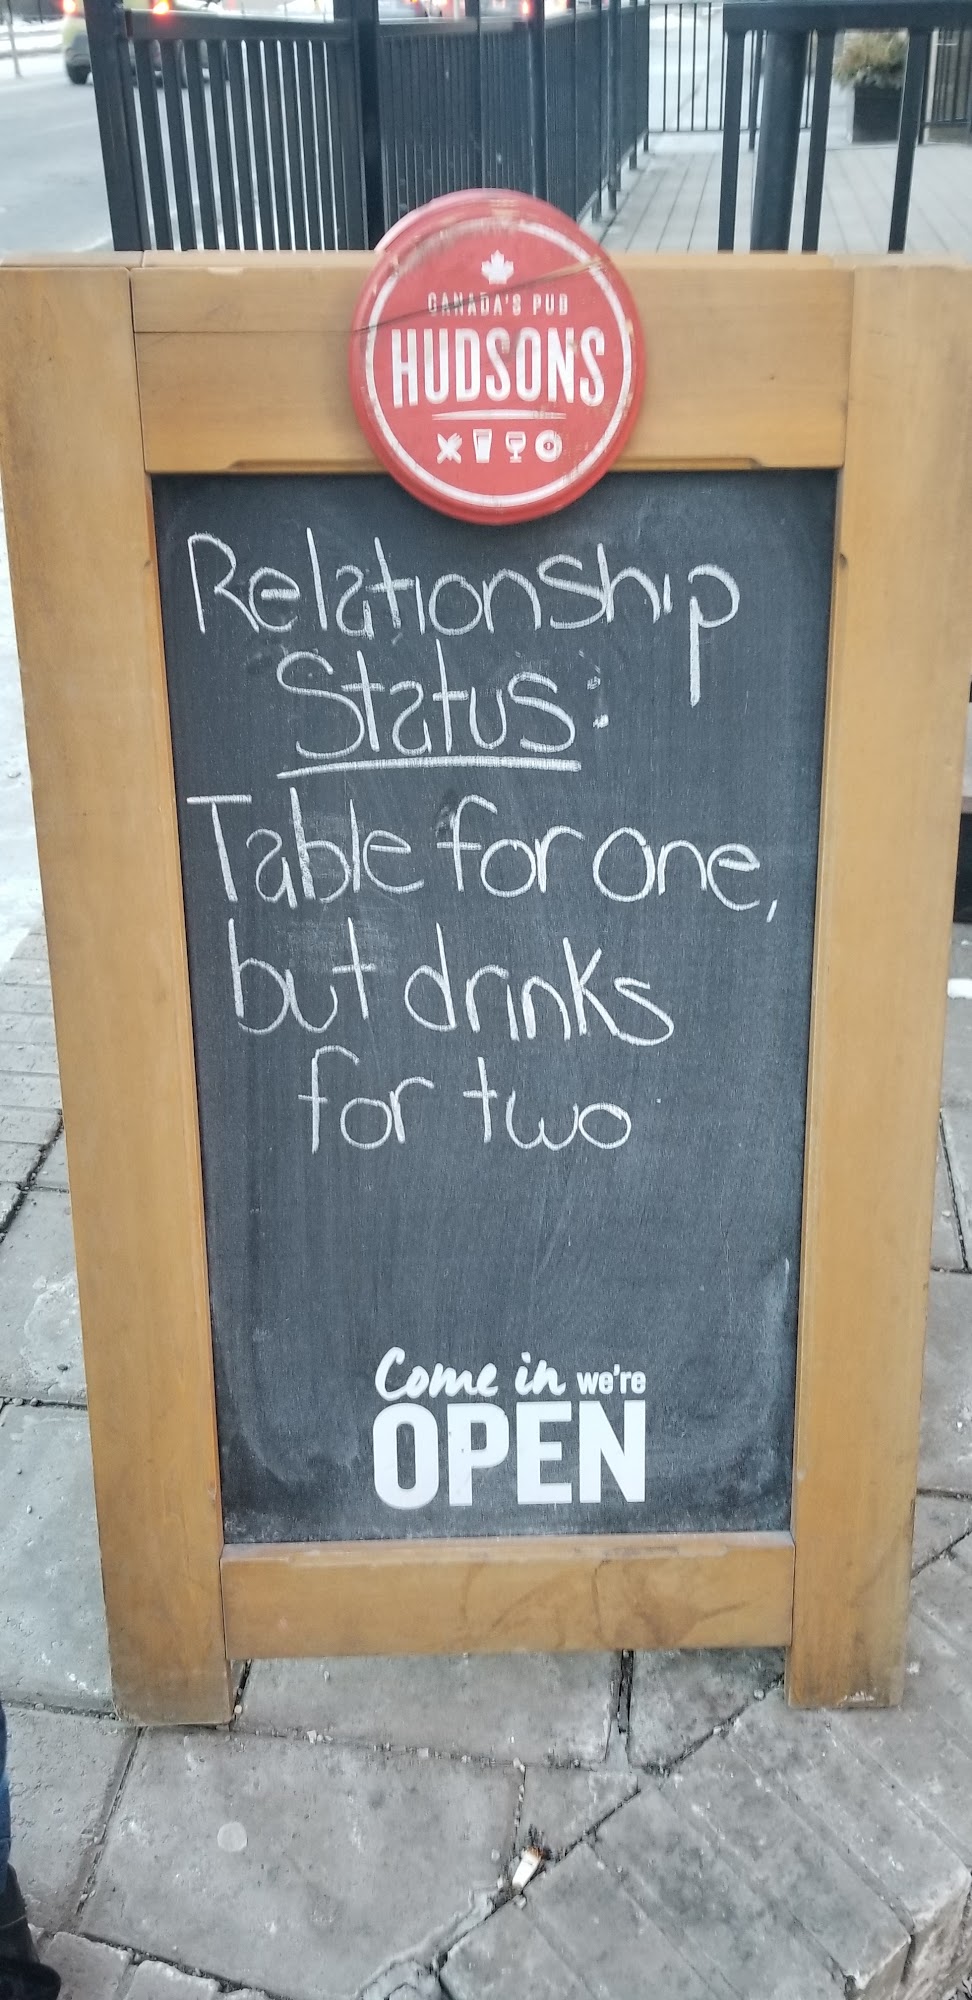 CANADA'S PUB
HUDSONS
Relationship
Status:
Table for one,
but drinks
for two
Come in we're
OPEN